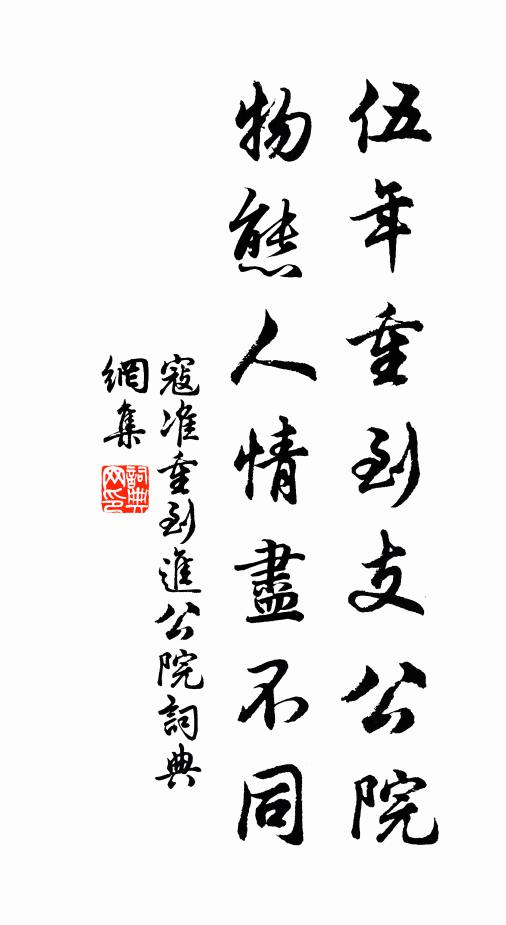 伍年重到支公院
物態人情盡不同
寇准重到進公院詞典
網集
詞典網印